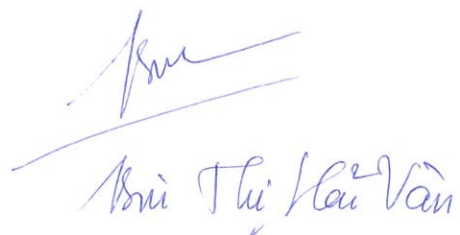 Bùi Thị Hải Vân